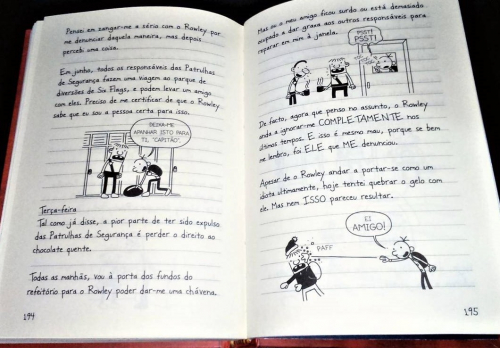 Pensei em zangar-me a sério com o Rowley por
me denunciar daquela maneira, mas depois
percebi uma coisa.
Em junho, todos os responsáveis das Patrulhas
de Segurança fazem uma viagem ao parque de
diversões de Six Flags, e podem levar um amigo
com eles. Preciso de me certificar de que o Rowley
sabe que eu sou a pessoa certa para isso.
DEIXA-ME
APANHAR ISTO PARA
TI, "CAPITÃO".
Terça-feira
Tal como já disse, a pior parte de ter sido expulso
das Patrulhas de Segurança é perder o direito ao
chocolate quente.
Todas as manhãs, vou à porta dos fundos do
refeitório para o Rowley poder dar-me uma chávena.
194
Mas ou o meu amigo ficou surdo ou está demasiado
ocupado a dar graxa aos outros responsáveis para
reparar em mim à janela.
PSST!
PSST!
De facto, agora que penso no assunto, o Rowley
anda a ignorar-me COMPLETAMENTE nos
últimos tempos. E isso é mesmo mau, porque se bem
me lembro, foi ELE que ME denunciou.
Apesar de o Rowley andar a portar-se como um
idiota ultimamente, hoje tentei quebrar o gelo com
ele. Mas nem ISSO pareceu resultar.
EI
AMIGO!
PAFF
195